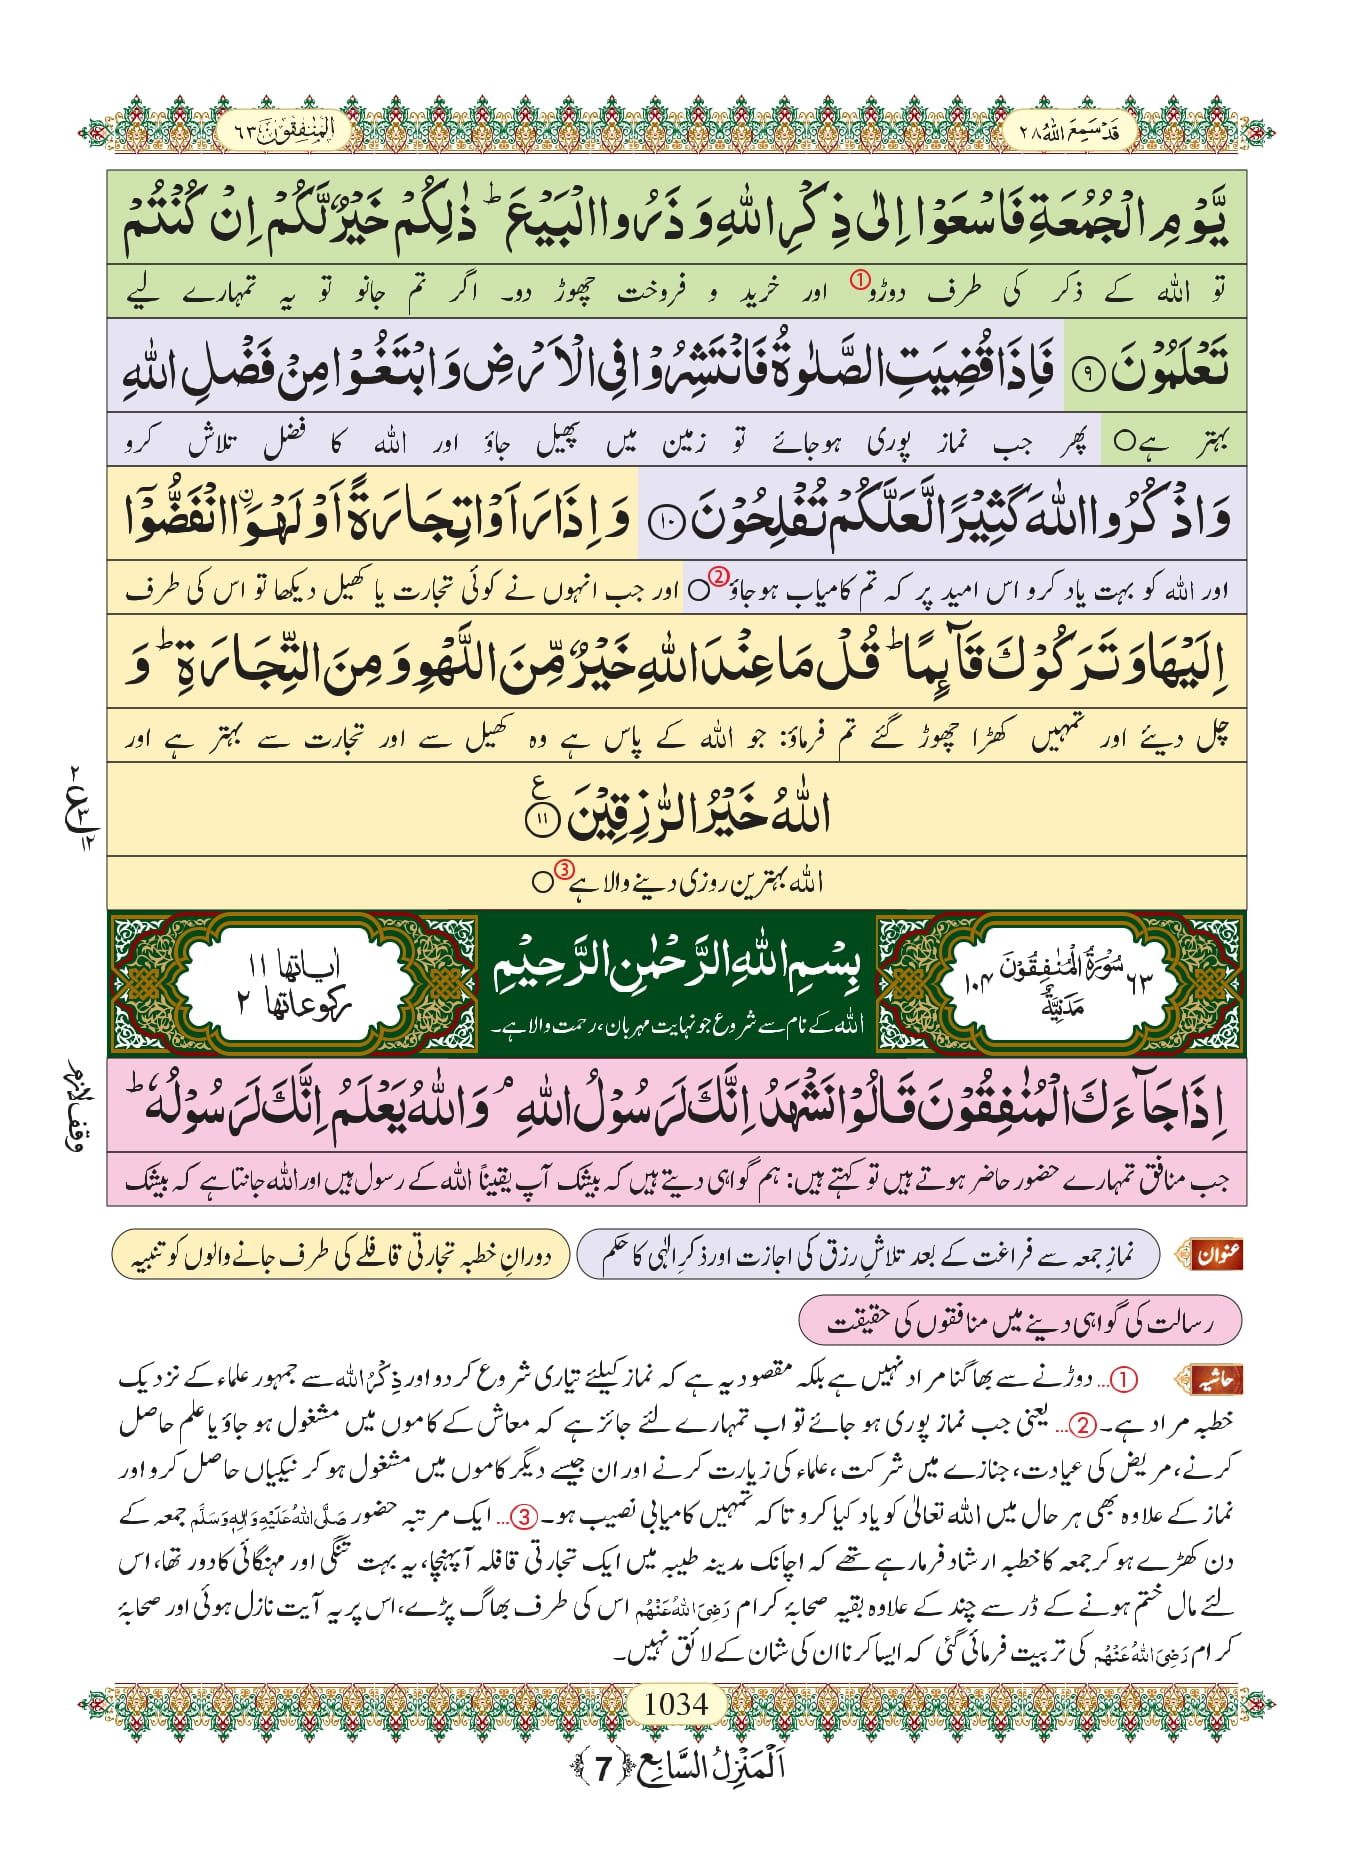 قَدْ سَمِعَ اللّٰهُ ٢٨
الْمُنٰفِقُوْنَ ٦٣
يَّوْمِ الْجُمُعَةِ فَاسْعَوْا اِلٰى ذِكْرِ اللّٰهِ وَ ذَرُوا الْبَيْعَ ؕ ذٰلِكُمْ خَيْرٌ لَّكُمْ اِنْ كُنْتُمْ
تو اللہ کے ذکر کی طرف دوڑو① اور خرید و فروخت چھوڑ دو۔ اگر تم جانو تو یہ تمہارے لیے
تَعْلَمُوْنَ ۹ فَاِذَا قُضِيَتِ الصَّلٰوةُ فَانْتَشِرُوْا فِي الْاَرْضِ وَ ابْتَغُوْا مِنْ فَضْلِ اللّٰهِ
بہتر ہے○ پھر جب نماز پوری ہوجائے تو زمین میں پھیل جاؤ اور اللہ کا فضل تلاش کرو
وَ اذْكُرُوا اللّٰهَ كَثِيْرًا لَّعَلَّكُمْ تُفْلِحُوْنَ ۱۰ وَ اِذَا رَاَوْا تِجَارَةً اَوْ لَهْوَا ۨ انْفَضُّوْۤا
اور اللہ کو بہت یاد کرو اس امید پر کہ تم کامیاب ہوجاؤ②○ اور جب انہوں نے کوئی تجارت یا کھیل دیکھا تو اس کی طرف
اِلَيْهَا وَ تَرَكُوْكَ قَآىِٕمًا ؕ قُلْ مَا عِنْدَ اللّٰهِ خَيْرٌ مِّنَ اللَّهْوِ وَ مِنَ التِّجَارَةِ ؕ وَ
چل دیئے اور تمہیں کھڑا چھوڑ گئے تم فرماؤ: جو اللہ کے پاس ہے وہ کھیل سے اور تجارت سے بہتر ہے اور
اللّٰهُ خَيْرُ الرّٰزِقِيْنَ ۱۱ ع
٢ ع ٣ ١٢
اللہ بہترین روزی دینے والا ہے③○
٦٣ سُوْرَةُ الْمُنٰفِقُوْنَ ١٠٤
مَدَنِيَّةٌ
بِسْمِ اللّٰهِ الرَّحْمٰنِ الرَّحِيْمِ
اللہ کے نام سے شروع جو نہایت مہربان، رحمت والا ہے۔
اٰیاتها ١١
رکوعاتها ٢
اِذَا جَآءَكَ الْمُنٰفِقُوْنَ قَالُوْا نَشْهَدُ اِنَّكَ لَرَسُوْلُ اللّٰهِ ۘ وَ اللّٰهُ يَعْلَمُ اِنَّكَ لَرَسُوْلُهٗ ؕ
وقف لازم
جب منافق تمہارے حضور حاضر ہوتے ہیں تو کہتے ہیں: ہم گواہی دیتے ہیں کہ بیشک آپ یقیناً اللہ کے رسول ہیں اور اللہ جانتا ہے کہ بیشک
عنوان نمازِ جمعہ سے فراغت کے بعد تلاشِ رزق کی اجازت اور ذکرِ الٰہی کا حکم دورانِ خطبہ تجارتی قافلے کی طرف جانے والوں کو تنبیہ
رسالت کی گواہی دینے میں منافقوں کی حقیقت
حاشیہ ①… دوڑنے سے بھاگنا مراد نہیں ہے بلکہ مقصود یہ ہے کہ نماز کیلئے تیاری شروع کر دو اور ذِکْرُ اللہ سے جمہور علماء کے نزدیک
خطبہ مراد ہے۔ ②… یعنی جب نماز پوری ہو جائے تو اب تمہارے لئے جائز ہے کہ معاش کے کاموں میں مشغول ہو جاؤ یا علم حاصل
کرنے، مریض کی عیادت، جنازے میں شرکت، علماء کی زیارت کرنے اور ان جیسے دیگر کاموں میں مشغول ہو کر نیکیاں حاصل کرو اور
نماز کے علاوہ بھی ہر حال میں اللہ تعالیٰ کو یاد کیا کرو تاکہ تمہیں کامیابی نصیب ہو۔ ③… ایک مرتبہ حضور صَلَّی اللہُ عَلَیْہِ وَاٰلِہٖ وَسَلَّم جمعہ کے
دن کھڑے ہو کر جمعہ کا خطبہ ارشاد فرما رہے تھے کہ اچانک مدینہ طیبہ میں ایک تجارتی قافلہ آپہنچا، یہ بہت تنگی اور مہنگائی کا دور تھا، اس
لئے مال ختم ہونے کے ڈر سے چند کے علاوہ بقیہ صحابۂ کرام رَضِیَ اللہُ عَنْہُم اس کی طرف بھاگ پڑے، اس پر یہ آیت نازل ہوئی اور صحابۂ
کرام رَضِیَ اللہُ عَنْہُم کی تربیت فرمائی گئی کہ ایسا کرنا ان کی شان کے لائق نہیں۔
1034
اَلْمَنْزِلُ السَّابِع ﴿7﴾